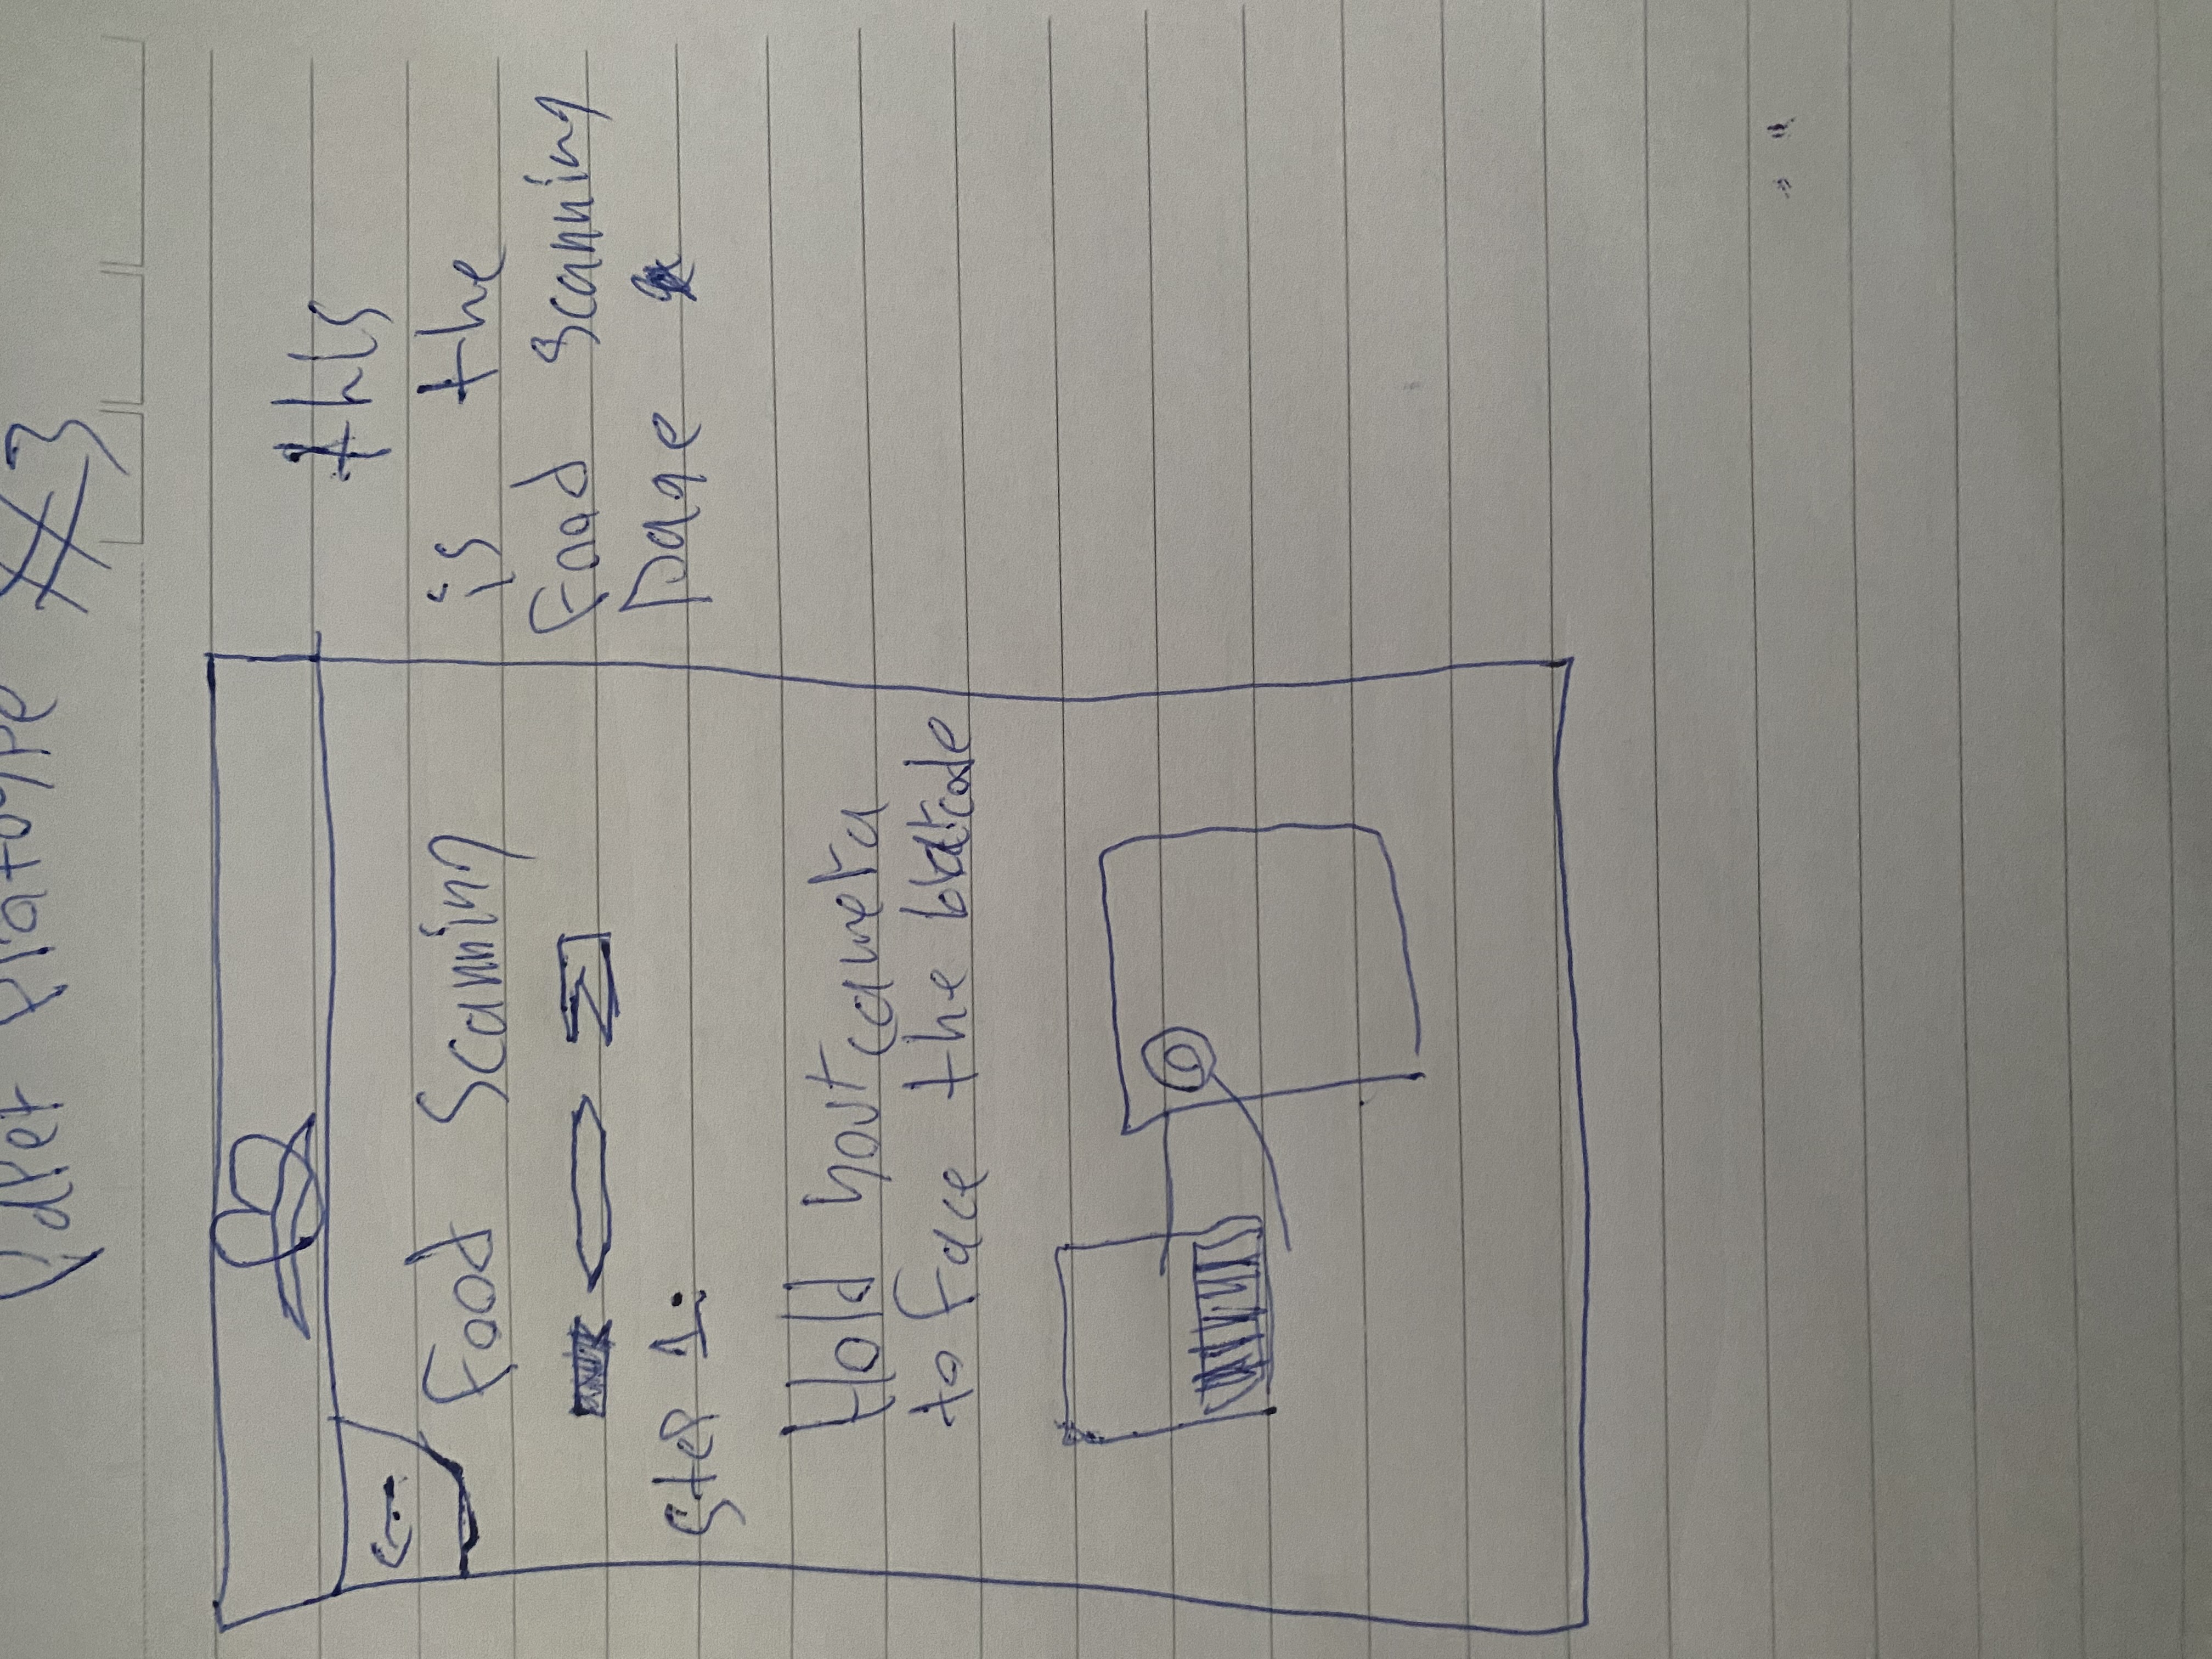 Paper Prototype #3
Food Scanning
Step 1:
Hold your camera
to face the barcode
this
is the
Food Scanning
Page